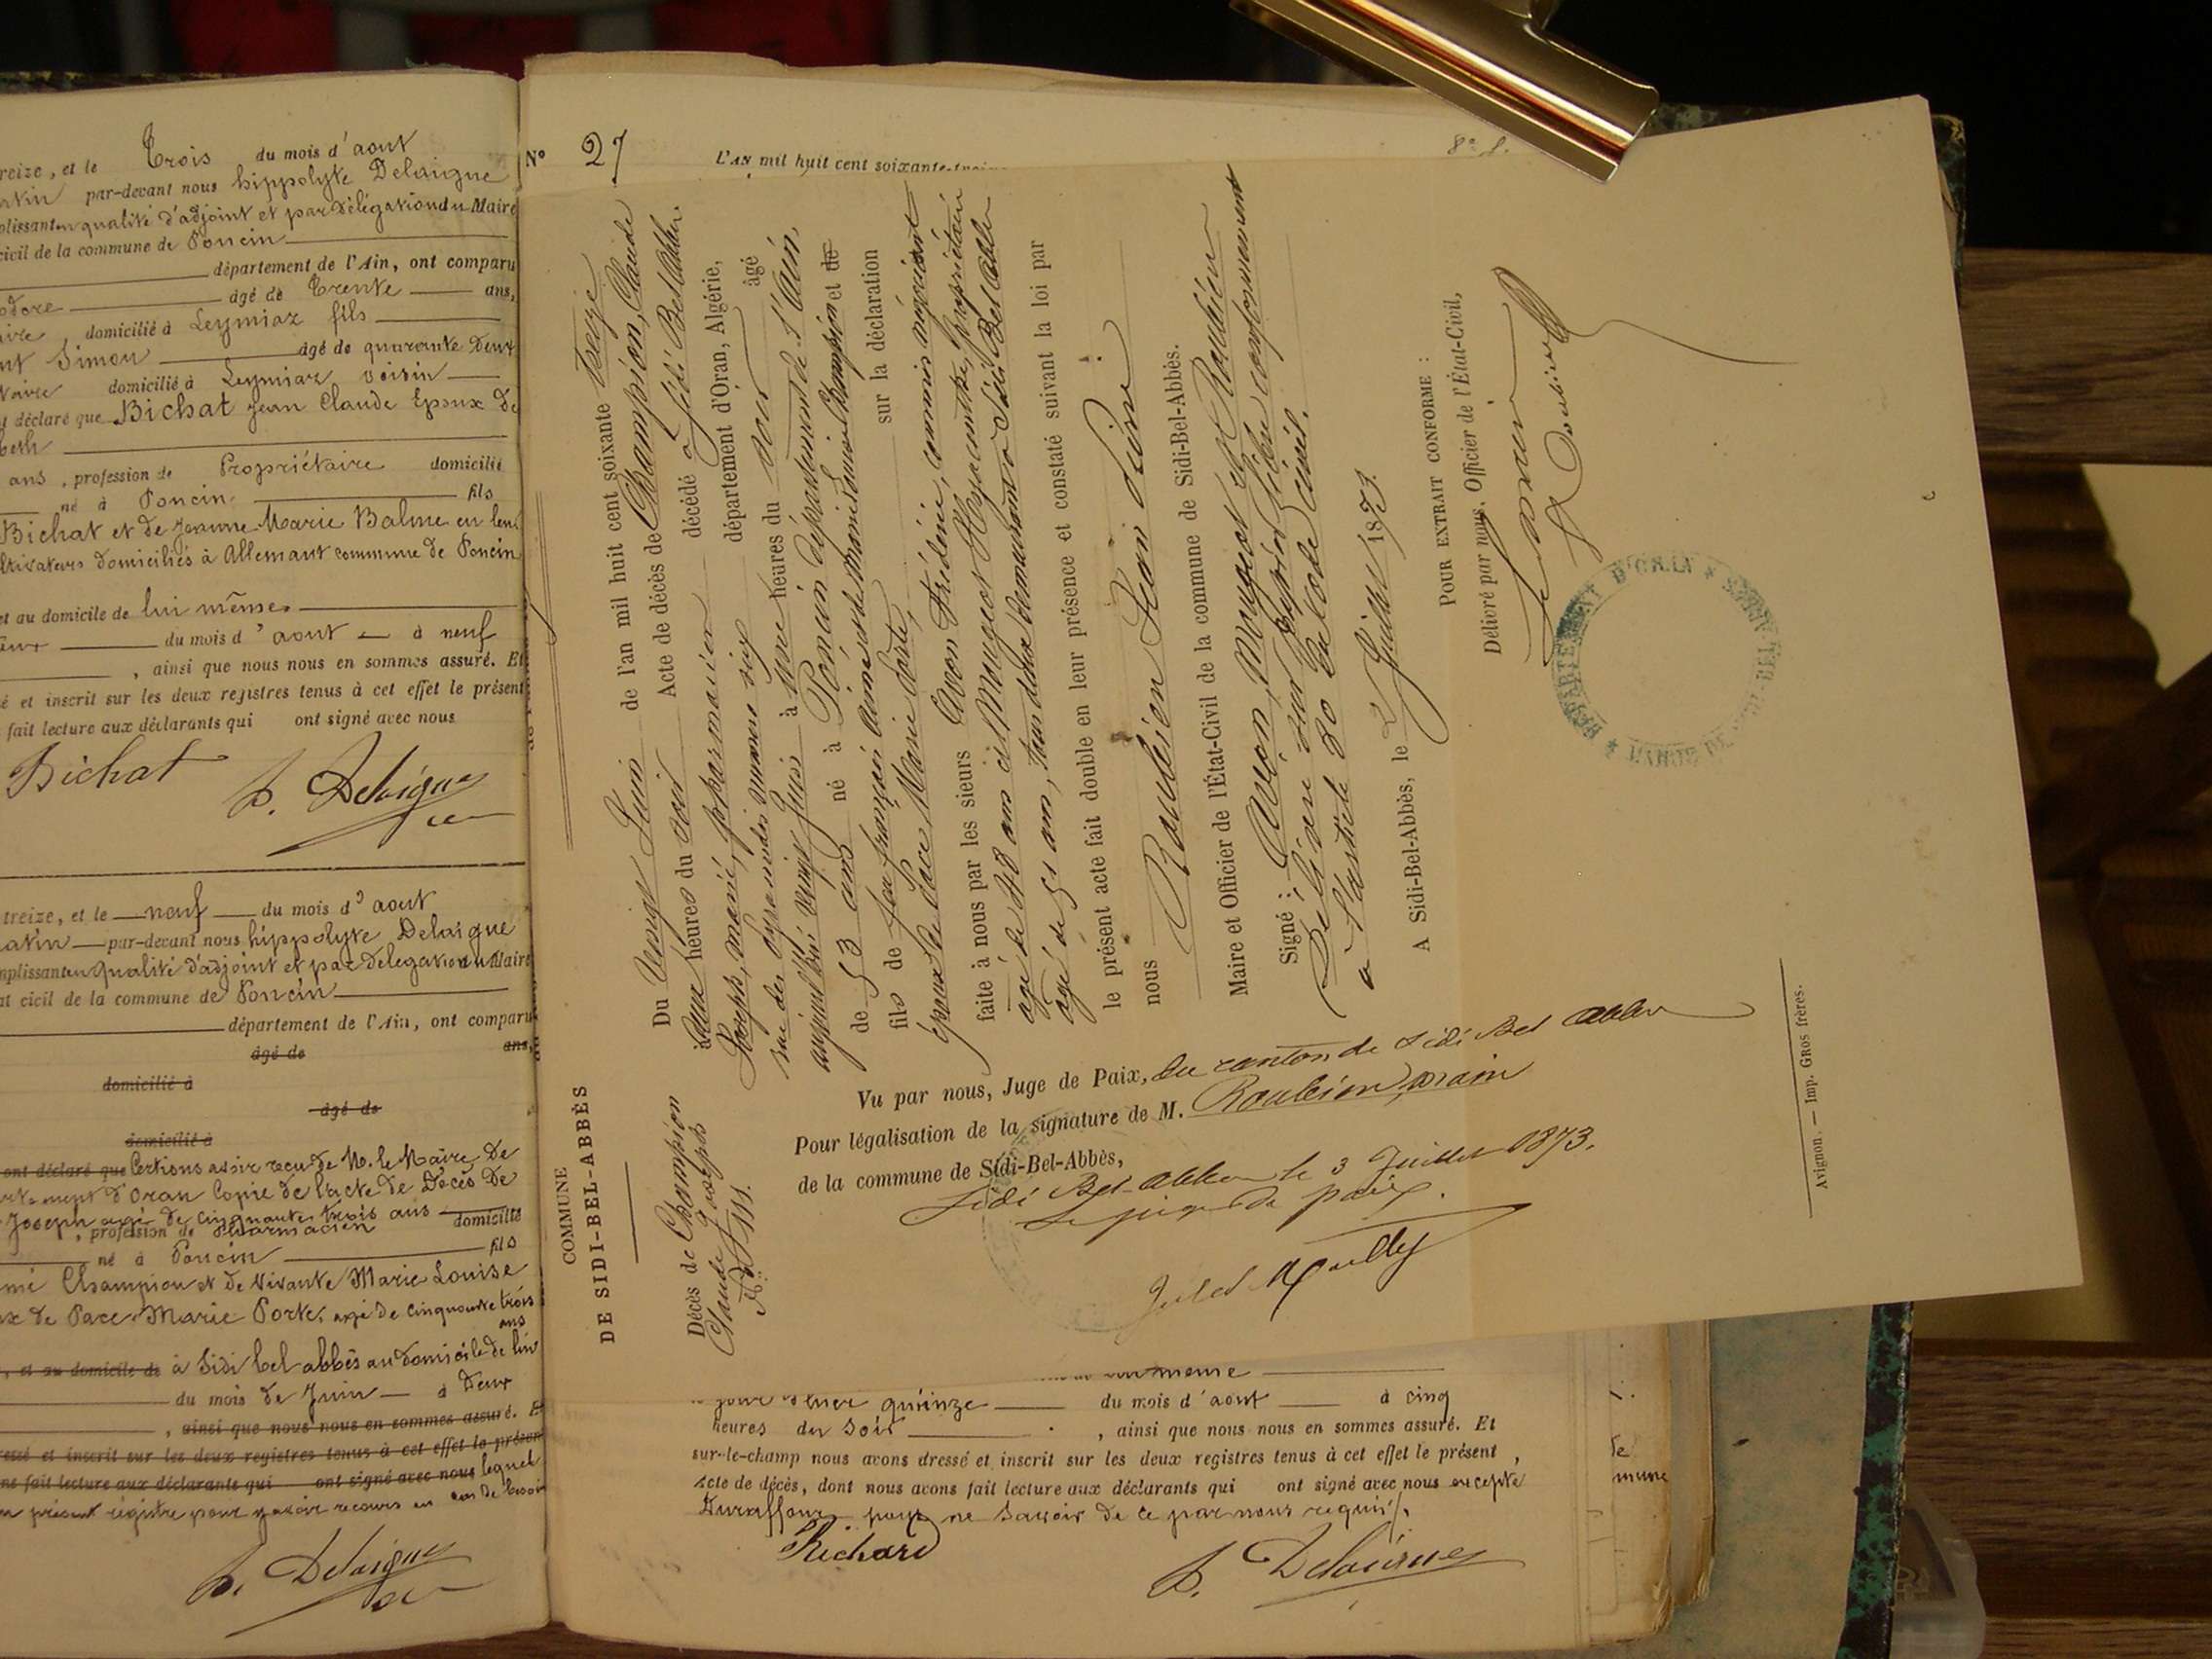 reize, et le Trois du mois d'aout
par-devant nous hippolyte Delaigue
plissant en qualité d'adjoint et par délégation du Maire
civil de la commune de Poncin
département de l'Ain, ont comparu
odore âgé de Trente ans,
domicilié à Leymiaz fils
Simon âgé de quarante Deux
domicilié à Leymiaz voisin
déclaré que Bichat Jean Claude Epoux De
beth
ans, profession de Propriétaire domicilié
né à Poncin fils
Bichat et de Jeanne-Marie Balme en leur
ltivateurs domiciliés à Allemant commune de Poncin
et au domicile de lui même
du mois d'aout à neuf
, ainsi que nous nous en sommes assuré. Et
é et inscrit sur les deux registres tenus à cet effet le présent
fait lecture aux déclarants qui ont signé avec nous
Bichat
h. Delaigue
treize, et le neuf du mois d'aout
atin par-devant nous hippolyte Delaigue
mplissant en qualité d'adjoint et par delegation du Maire
at civil de la commune de Poncin
département de l'Ain, ont comparu
âgé de ans,
domicilié à
âgé de
domicilié à
ont déclaré que Certions avoir reçu de M. le Maire De
d'Oran Copie de l'acte de Décès De
Joseph agé de cinquante trois ans domicilié
, profession de Pharmacien
né à Poncin fils
mé Champion et de Vivante Marie Louise
ux de Pace Marie Porte, agé de cinquante trois
ans
, et au domicile de à Sidi bel abbès au Domicile de lui
du mois de Juin à Deux
, ainsi que nous nous en sommes assuré. Et
ressé et inscrit sur les deux registres tenus à cet effet le présent
ons fait lecture aux déclarants qui ont signé avec nous lequel
présent régistre pour y avoir recours en cas de besoin
h. Delaigue
N° 27
L'AN mil huit cent soixante-treize
8e f.
COMMUNE
DE SIDI-BEL-ABBÈS
Décès de Champion
Claude Joseph
N° 111.
Du Vingt Juin de l'an mil huit cent soixante treize
à Deux heures du soir Acte de décès de Champion, Claude
Joseph, marié, pharmacien décédé à Sidi Bel Abbès.
rue des Pyramides numéro six département d'Oran, Algérie,
aujourd'hui vingt Juin à une heures du soir âgé
de 53 ans né à Poncin département de l'Ain,
fils de feu françois Aimé et de Marie Louise Champion et de
époux de Pace, Marie Porte, sur la déclaration
faite à nous par les sieurs Avon Frédéric, commis négociant
agé de 48 ans et Mougeot Hyacinthe, propriétaire
agé de 51 ans, tous deux demeurant à Sidi Bel Abbès
le présent acte fait double en leur présence et constaté suivant la loi par
nous Roubière Léon Maire
Maire et Officier de l'État-Civil de la commune de Sidi-Bel-Abbès.
Signé : Avon, Mougeot et Roubière
Délivré sur papier libre conformément
à l'article 80 du Code Civil.
A Sidi-Bel-Abbès, le 2 Juillet 1873.
POUR EXTRAIT CONFORME :
Délivré par nous, Officier de l'État-Civil,
Le Maire
DÉPARTEMENT D'ORAN * MAIRIE DE SIDI-BEL-ABBÈS *
Vu par nous, Juge de Paix, du canton de Sidi Bel Abbès
Pour légalisation de la signature de M. Roubière, maire
de la commune de Sidi-Bel-Abbès,
Sidi Bel-Abbès le 3 Juillet 1873.
Le juge de paix.
Avignon. — Imp. GROS frères.
même
quinze du mois d'aout à cinq
heures du soir , ainsi que nous nous en sommes assuré. Et
sur-le-champ nous avons dressé et inscrit sur les deux registres tenus à cet effet le présent
acte de décès, dont nous avons fait lecture aux déclarants qui ont signé avec nous excepté
Duraffour pour ne savoir de ce par nous requis.
Richard
h. Delaigue